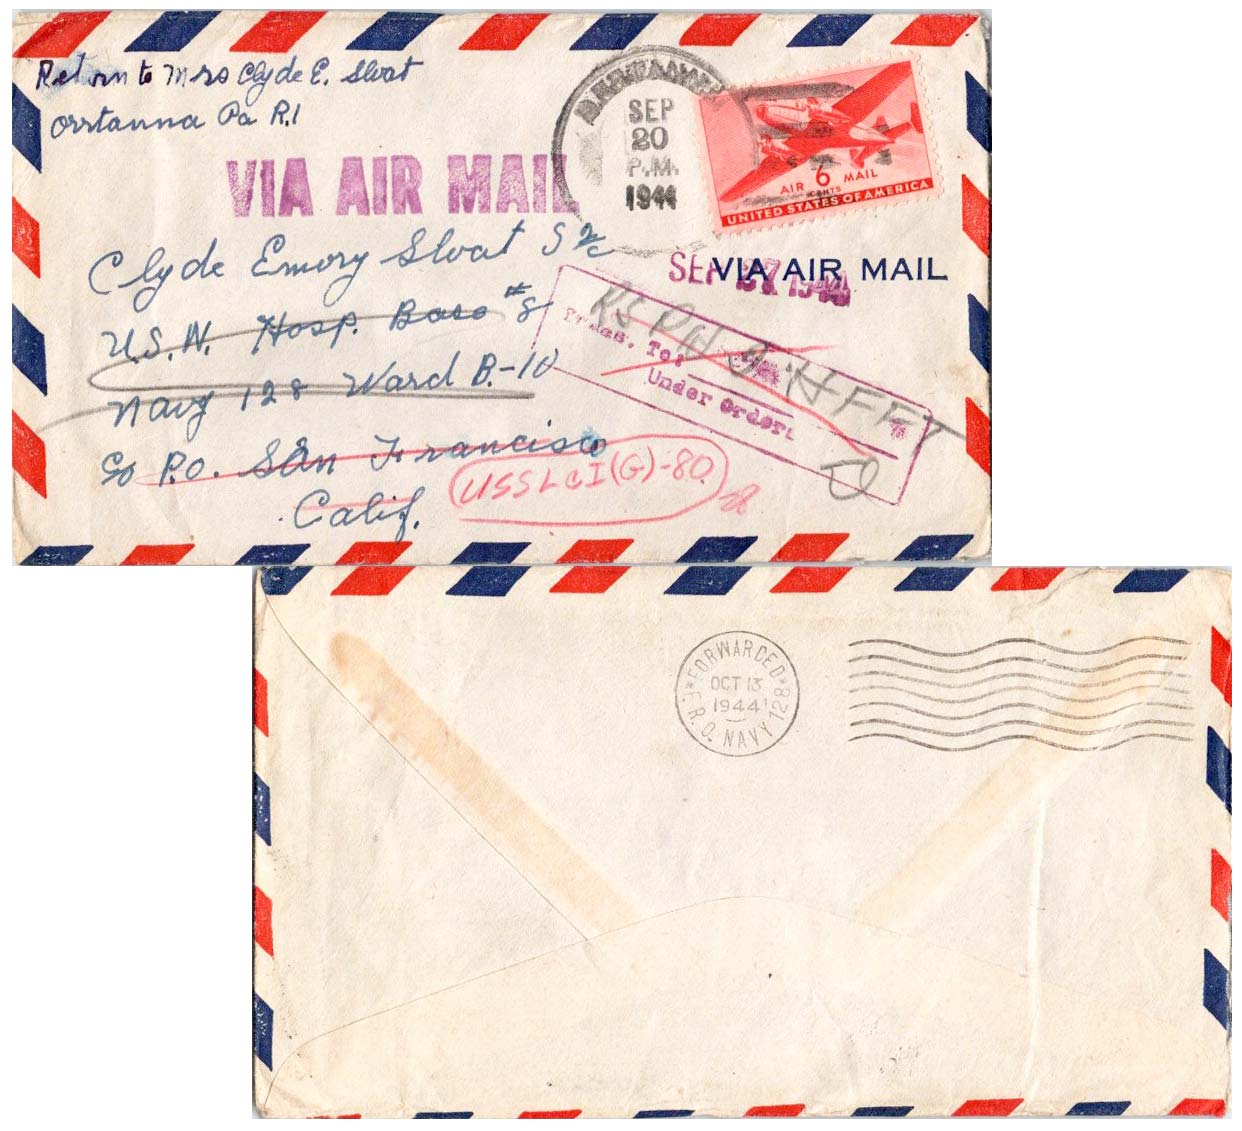 Return to Mrs Clyde E. Sloat
Orrtanna Pa R.1
VIA AIR MAIL
SEP
20
P.M.
1944
AIR 6 MAIL
CENTS
UNITED STATES OF AMERICA
Clyde Emory Sloat S 2/c
U.S.N. Hosp. Base #8
Navy 128 Ward B.-10
c/o P.O. San Francisco
Calif.
VIA AIR MAIL
SEP 27 1944
Trans. To:
Under Orders
USS LCI(G)-80
FORWARDED
OCT 13
1944
F.R.O. NAVY 128